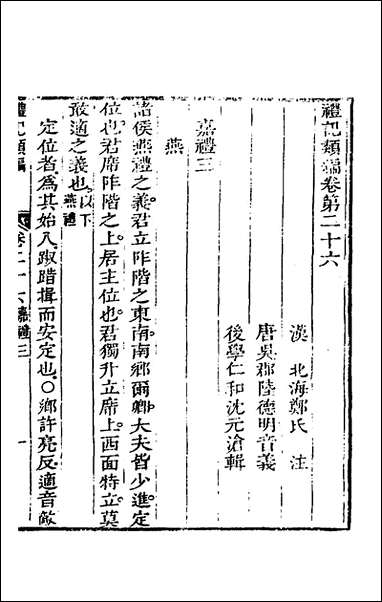 禮記類編卷第二十六
漢　北海鄭氏　注
唐吳郡陸德明音義
後學仁和沈元滄輯
嘉禮三
燕
諸侯燕禮之義。君立阼階之東南。南鄉爾卿。大夫皆少進。定
位也。君席阼階之上。居主位也。君獨升立席上。西面特立。莫
敢適之義也。以下燕禮
定位者。為其始入。踧踖揖而安定也。○鄉許亮反。適音敵
禮記類編
卷二十六嘉禮三
一